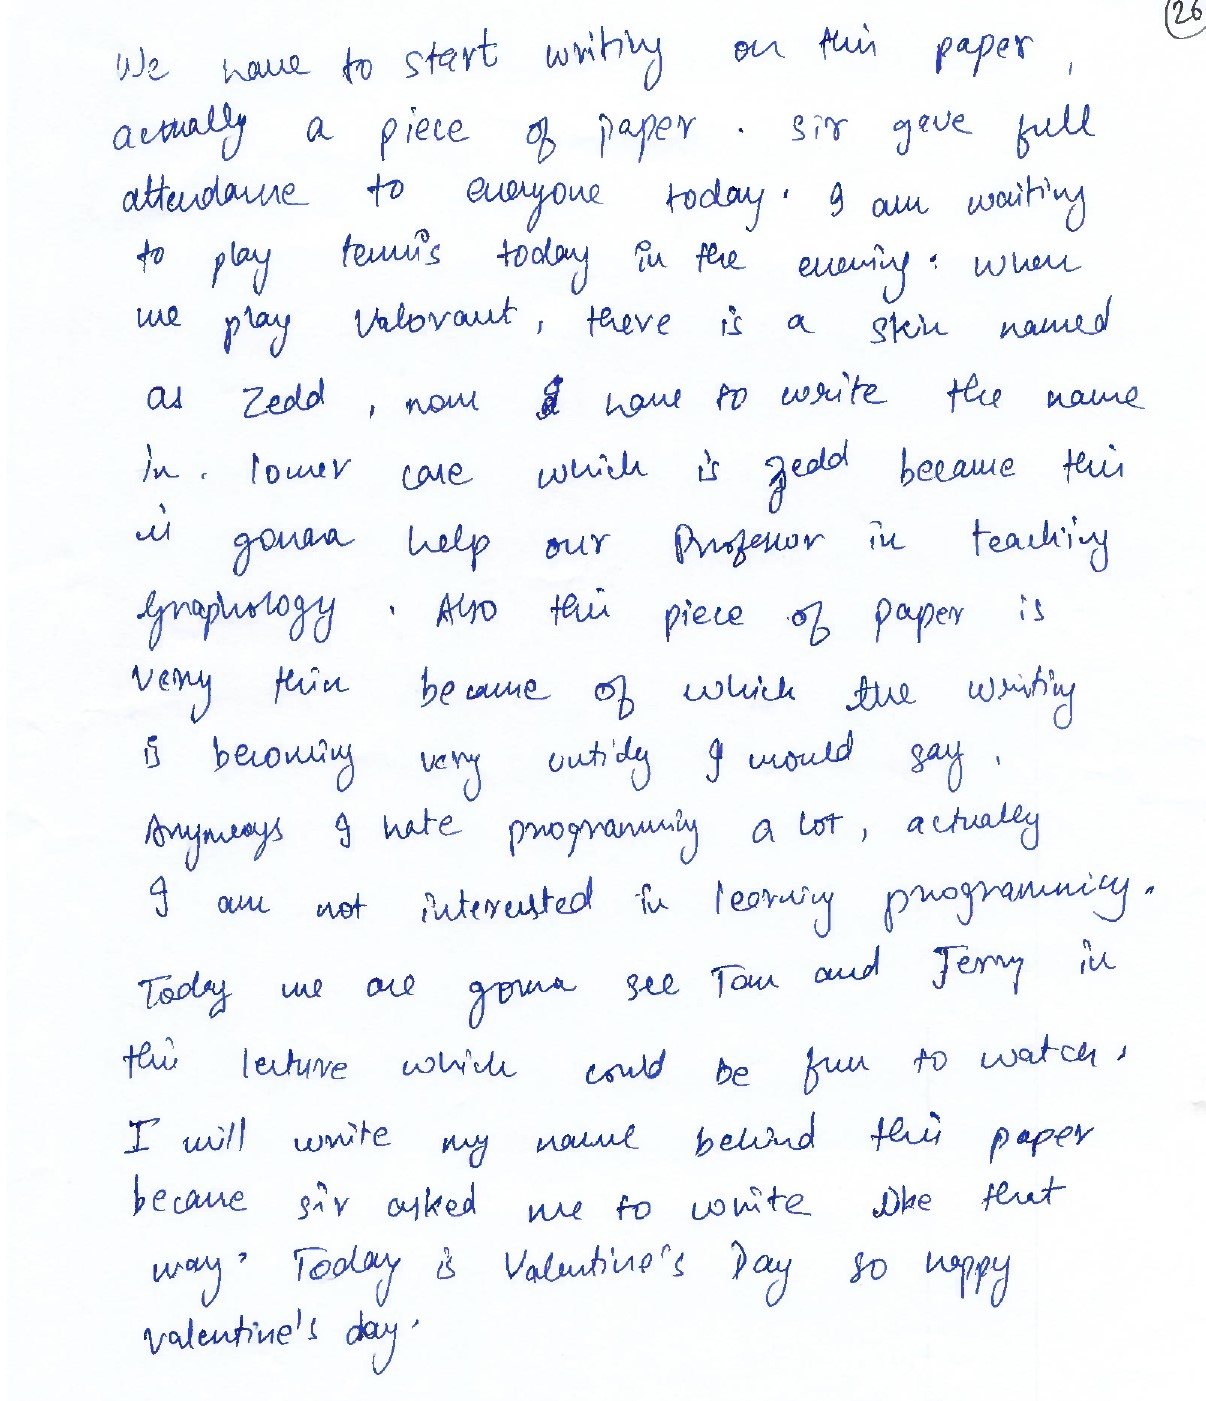 26
We have to start writing on this paper,
actually a piece of paper. Sir gave full
attendance to everyone today. I am waiting
to play tennis today in the evening. When
we play Valorant, there is a skin named
as Zedd, now I have to write the name
in. lower case which is zedd because this
is gonna help our Professor in teaching
Graphology. Also this piece of paper is
very thin because of which the writing
is becoming very untidy I would say.
Anyways I hate programming a lot, actually
I am not interested in learning programming.
Today we are gonna see Tom and Jerry in
this lecture which could be fun to watch.
I will write my name behind this paper
because sir asked me to write like that
way. Today is Valentine's Day so happy
valentine's day.